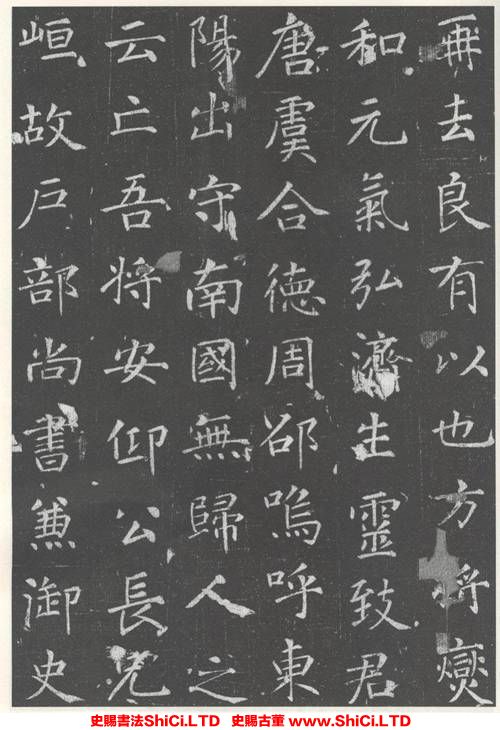 再去良有以也方将燮
和元氣弘濟生靈致君
唐虞合德周邵嗚呼東
陽出守南國無歸人之
云亡吾将安仰公長兄
峘故户部尚書兼御史
史賜書法ShiCi.LTD 史賜古董 www.ShiCi.LTD